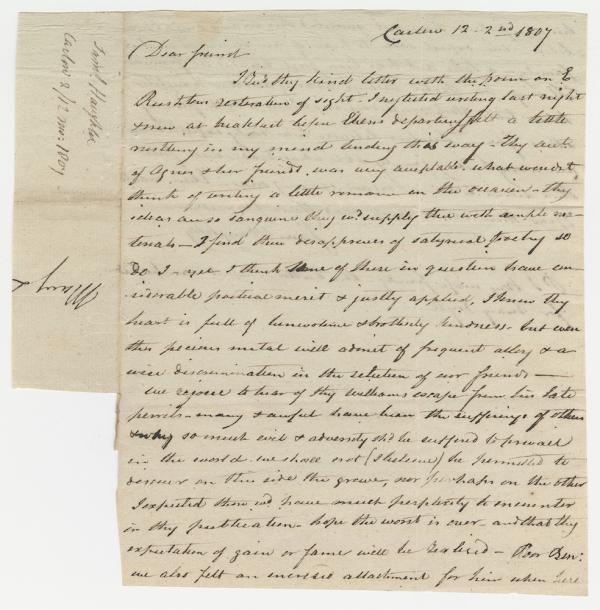 Carlow 12. 2nd 1807
Dear friend
I Recd thy kind letter with the poem on E
Rushtons restoration of sight - I neglected writing last night
& now at breakfast before Ebens departing felt a little
restling in my mind tending this way - Thy acct
of Agnes & her friends was very acceptable. what wouldst
think of writing a little romance on the occasion - thy
ideas are so sanguine they wd supply thee with ample ma-
terials - I find thou disapproves of satyrical poetry so
do I - yet I think some of these in question have con-
siderable poetical merit & justly applied, I know thy
heart is full of benevolence & brotherly kindness - but even
this precious metal will admit of frequent alloy & a
wise discrimination in the selection of our friends —
we rejoice to hear of thy Williams escape from his late
perils - many & awful have been the sufferings of others
& why so much evil & adversity shd be suffered to prevail
in the world we shall not (I believe) be permitted to
discover on this side the grave, nor perhaps on the other
I expected thou wd have much perplexity to encounter
in thy publication - hope the worst is over - and that thy
expectation of gain or fame will be realised - Poor Ben:
we also felt an increased attachment for him when here
Saml Haughton
Carlow 2/12 mo: 1807